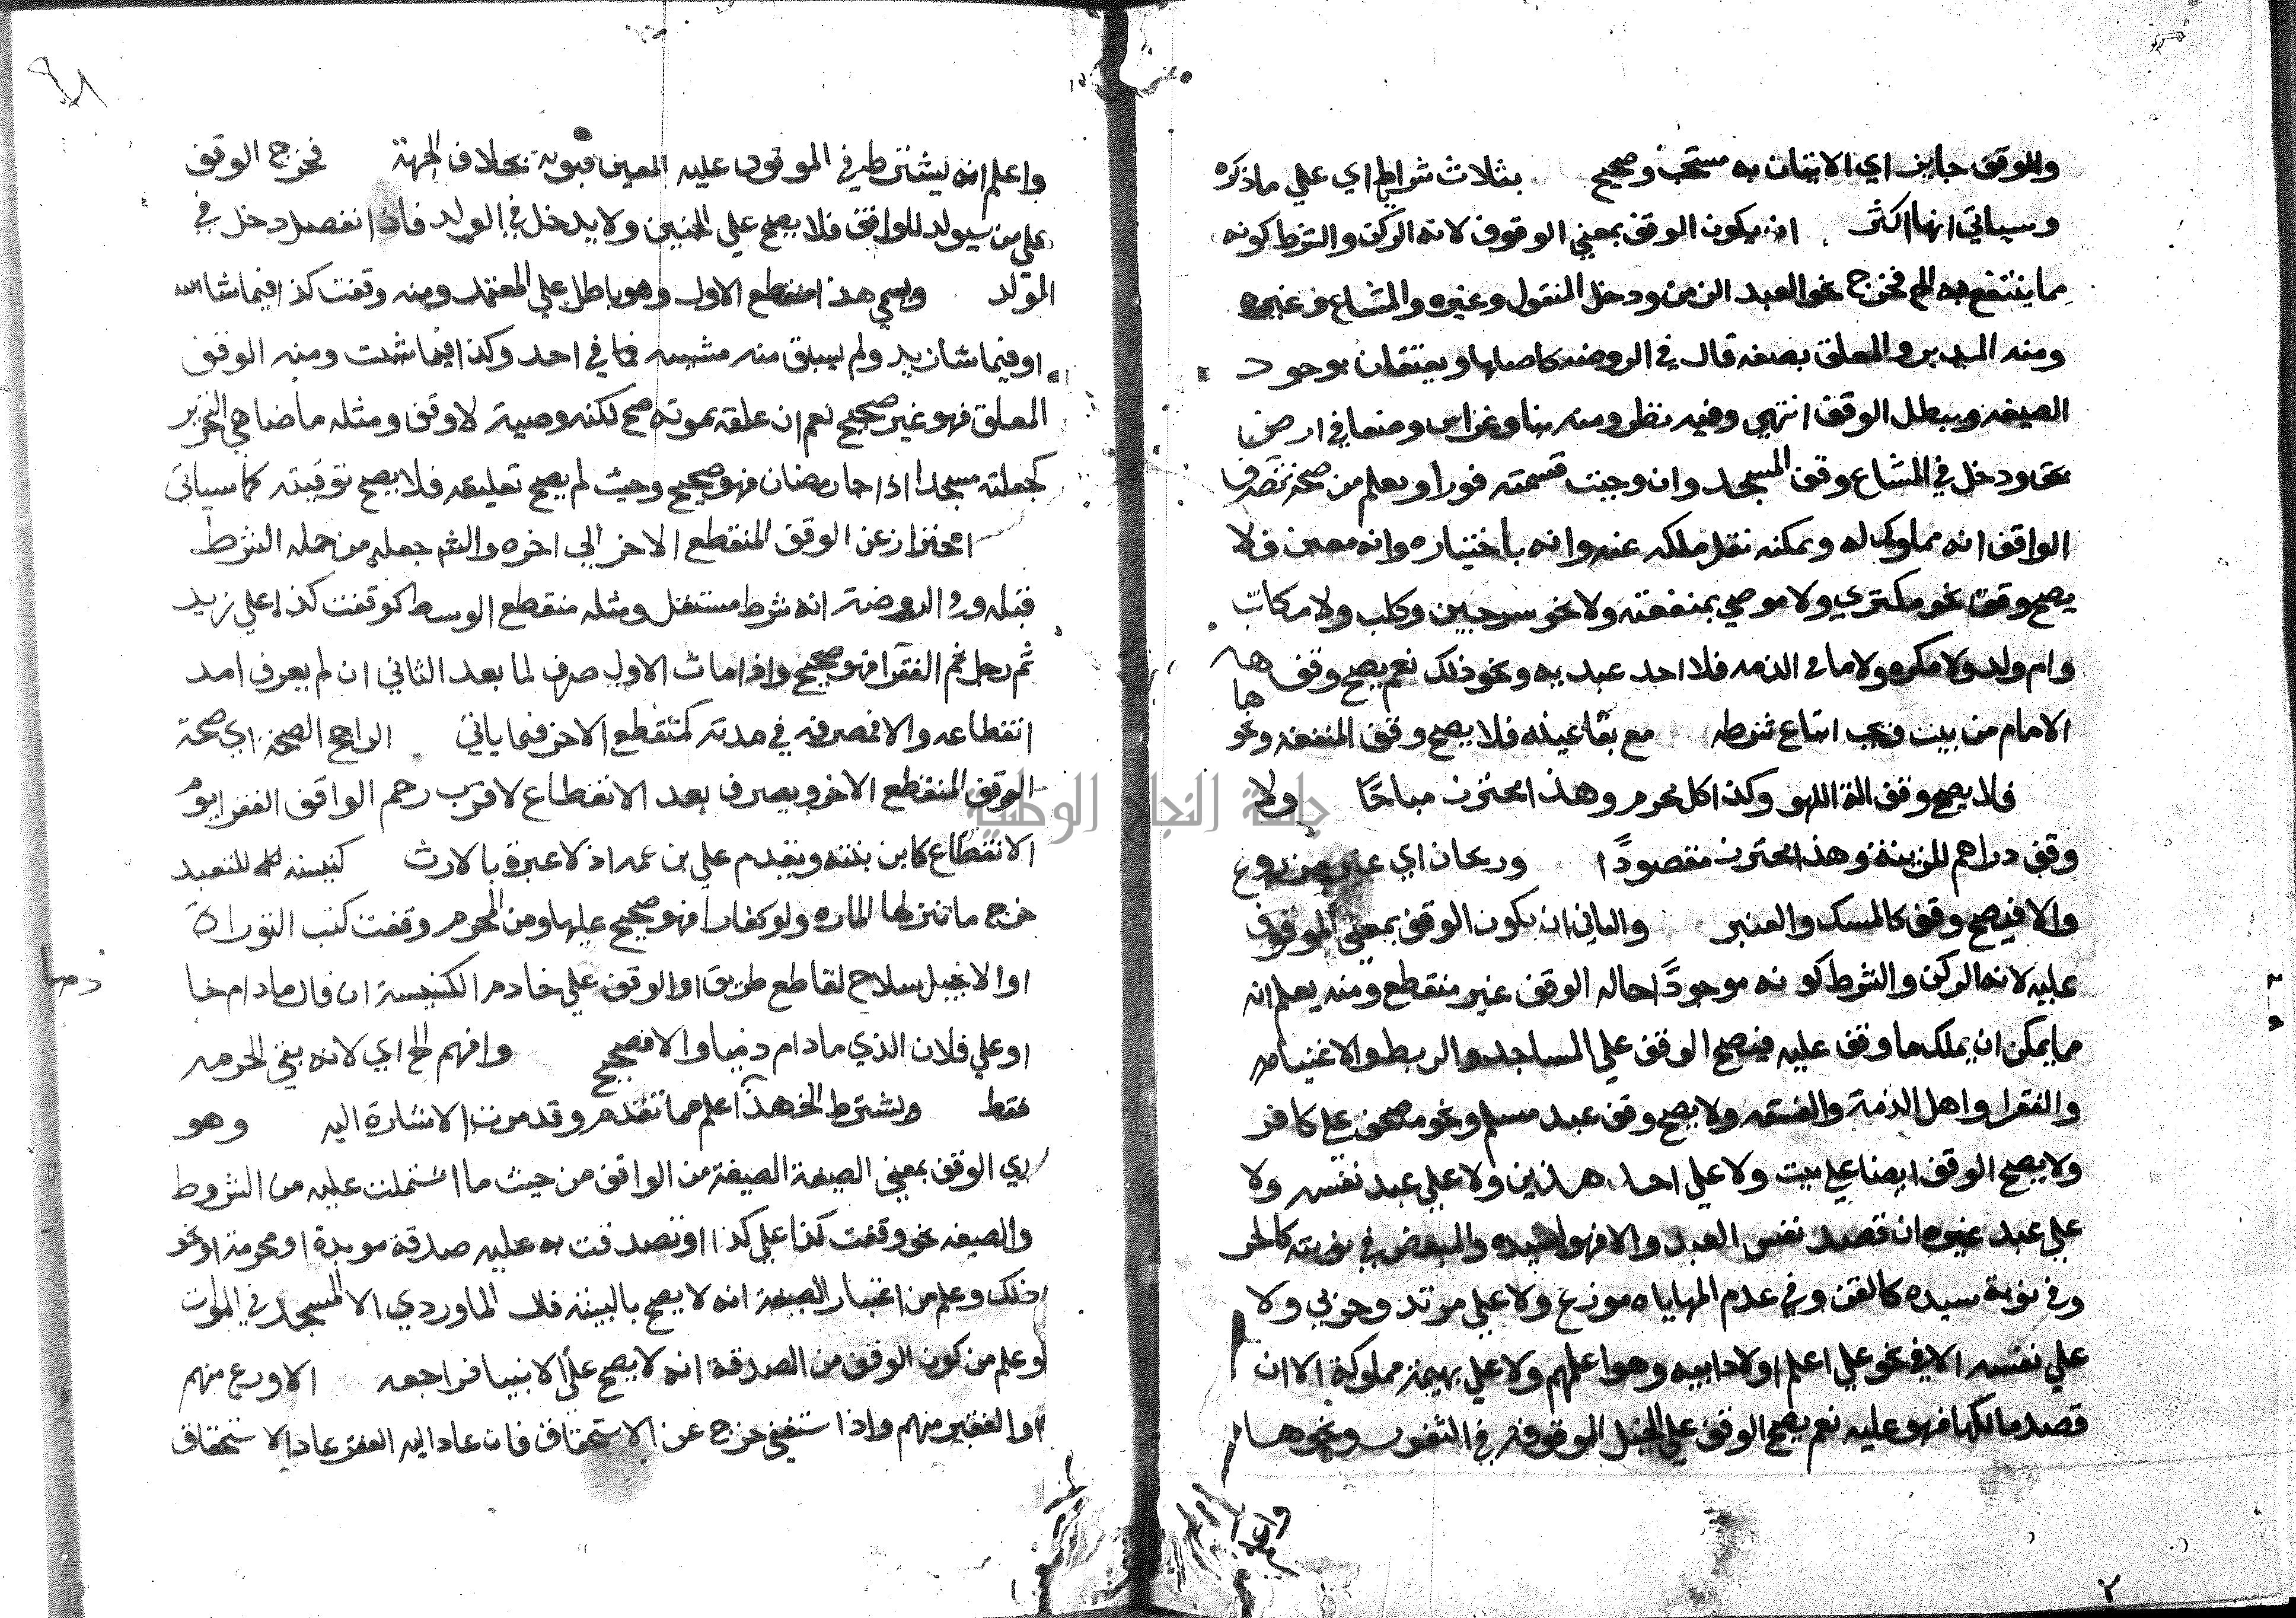 والوقف جايز اي الاتيان به مستحب وصحيح بثلاث شرايط اي علي ما ذكره
وسياتي انها اكثر ان يكون الوقف بمعني الموقوف لانه الركن والشرط كونه
مما ينتفع به الخ فخرج نحو العبد الزمن ودخل المنقول وغيره والمشاع وغيره
ومنه المدبر والمعلق بصفه قال في الروضه كاصلها ويعتقان بوجود
الصيغه ويبطل الوقف انتهي وفيه نظر ومنه بنا وغراس وضعا في ارض
بحق ودخل في المشاع وقف المسجد وان وجبت قسمته فورا ويعلم من صحة تصرف
الواقف انه مملوك له ويمكنه نقل ملكه عنه وانه باختياره وانه معين فلا
يصح وقف نحو مكتري ولا موصي بمنفعته ولا نحو سرجين وكلب ولا مكاتب
وام ولد ولا مكره ولا ما في الذمه فلا احد عبديه ونحو ذلك نعم يصح وقف
الامام من بيت ويجب اتباع شرطه مع بقا عينه فلا يصح وقف المنفعه ونحوها
فلا يصح وقف الة اللهو وكذا كل محرم وهذا محترز مباحًا ولا
وقف دراهم للزينة وهذا محترز مقصودًا وريحان اي غير مزروع
والا فيصح وقف كالمسك والعنبر والثاني ان يكون الوقف بمعني الموقوف
عليه لانه الركن والشرط كونه موجودًا حاله الوقف غير منقطع ومنه يعلم انه
مما يمكن ان يملك ما وقف عليه فيصح الوقف علي المساجد والربط والاغنيا
والفقرا واهل الذمة والفسقه ولا يصح وقف عبد مسلم ونحو مصحف علي كافر
ولا يصح الوقف ايضا علي ميت ولا علي احد هذين ولا علي عبد نفسه ولا
علي عبد غيره ان قصد نفس العبد والا فهو لسيده والمبعض في نوبته كالحر
وفي نوبة سيده كالقن وفي عدم المهاياه موزع ولا علي مرتد وحربي ولا
علي نفسه الا في نحو علي اعلم اولاد ابيه وهو اعلمهم ولا علي بهيمة مملوكة الا ان
قصد مالكها فهو عليه نعم يصح الوقف علي الخيل الموقوفة في الثغور ونحوها
واعلم
٢
واعلم انه يشترط في الموقوف عليه المعين قبوله بخلاف الجهة فخرج الوقف
علي من سيولد للواقف فلا يصح علي الجنين ولا يدخل في الولد فاذا انفصل دخل في
المولد ويسمي هذا منقطع الاول وهو باطل علي المعتمد ومنه وقفت كذا فيما شا الله
او فيما شا زيد ولم يسبق منه مشيه في احد وكذا فيما شئت ومنه الوقف
المعلق فهو غير صحيح نعم ان علقه بموته صح لكنه وصية لا وقف ومثله ما ضاهي التحرير
كجعلته مسجدا اذا جا رمضان فهو صحيح وحيث لم يصح تعليقه فلا يصح توقيته كما سياتي
احتراز عن الوقف المنقطع الاخر الي اخره والشم جعله من جمله الشرط
قبله وفي الروضة انه شرط مستقل ومثله منقطع الوسط كوقفت كذا علي زيد
ثم رجل ثم الفقرا فهو صحيح واذا مات الاول صرف لما بعد الثاني ان لم يعرف امد
انقطاعه والا فمصرفه في مدته كمنقطع الاخر فيما ياتي الراجح الصحة اي صحة
الوقف المنقطع الاخر ويصرف بعد الانقطاع لاقرب رحم الواقف الفقرا يوم
الانقطاع كابن بنته ويقدم علي بن عمه اذ لا عبرة بالارث كنيسه للتعبد
خرج ما تنزلها الماره ولو كفارا فهو صحيح عليها ومن المحرم وقفت كتب التوراة
او الانجيل سلاح لقاطع طريق او الوقف علي خادم الكنيسة ان قال ما دام خا
دمها
او علي فلان الذي ما دام دميا والا فصحيح وافهم الخ اي لانه ينفي الحرمه
فقط ويشترط الخ هذا علم مما تقدم وقد مرت الاشارة اليه وهو
اي الوقف بمعني الصيغة الصيغة من الواقف من حيث ما اشتملت عليه من الشروط
والصيغه نحو وقفت كذا علي كذا او تصدقت به عليه صدقة موبدة او محرمة او نحو
ذلك وعلم من اعتبار الصيغة انه لا يصح بالنية قال الماوردي الا المسجد في الموات
وعلم من كون الوقف من الصدقة انه لا يصح علي الانبيا فراجعه الاورع منهم
او الفقير منهم واذا استغني خرج عن الاستحقاق فان عاد اليه الفقر عاد الاستحقاق
جامعة النجاح الوطنية